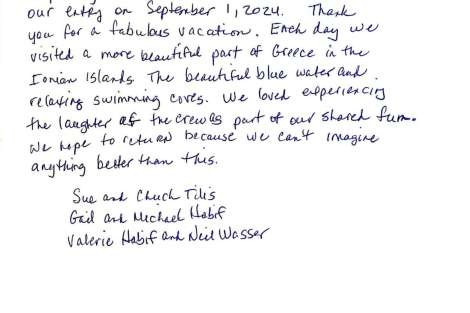 our entry on September 1, 2024. Thank
you for a fabulous vacation. Each day we
visited a more beautiful part of Greece in the
Ionian Islands. The beautiful blue water and
relaxing swimming coves. We loved experiencing
the laughter of the crew as part of our shared fun.
We hope to return because we can't imagine
anything better than this.
Sue and Chuck Tilis
Gail and Michael Habif
Valerie Habif and Neil Wasser